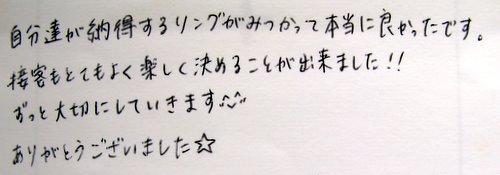 自分達が納得するリングがみつかって本当に良かったです。
接客もとてもよく楽しく決めることが出来ました!!
ずっと大切にしていきます^^
ありがとうございました☆